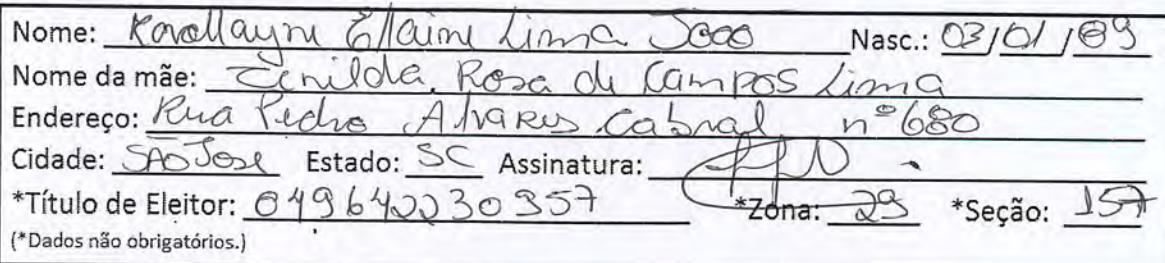 Nome: Karollayne Ellaine Lima Joao Nasc.: 03/01/89
Nome da mãe: Zenilda Rosa de Campos Lima
Endereço: Rua Pedro Alvares Cabral nº 680
Cidade: SÃO José Estado: SC Assinatura:
*Título de Eleitor: 049642230357 *Zona: 29 *Seção: 157
(*Dados não obrigatórios.)